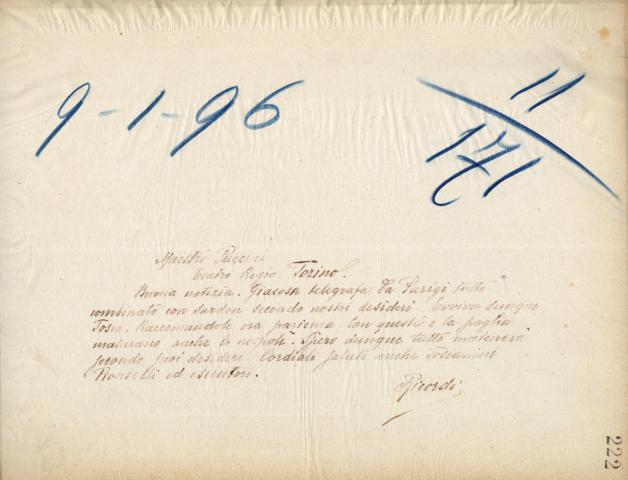 9-1-96
11
171
Maestro Puccini
Teatro Regio. Torino.
Buona notizia. Giacosa telegrafa da Parigi tutto
combinato con Sardou secondo nostri desideri. Evviva dunque
Tosca. Raccomandole ora pazienza. Con questa e la paglia
maturano anche le nespole. Spero dunque tutto
secondo suoi desideri. Cordiali saluti anche Toscanini
ed esecutori.
Ricordi
222